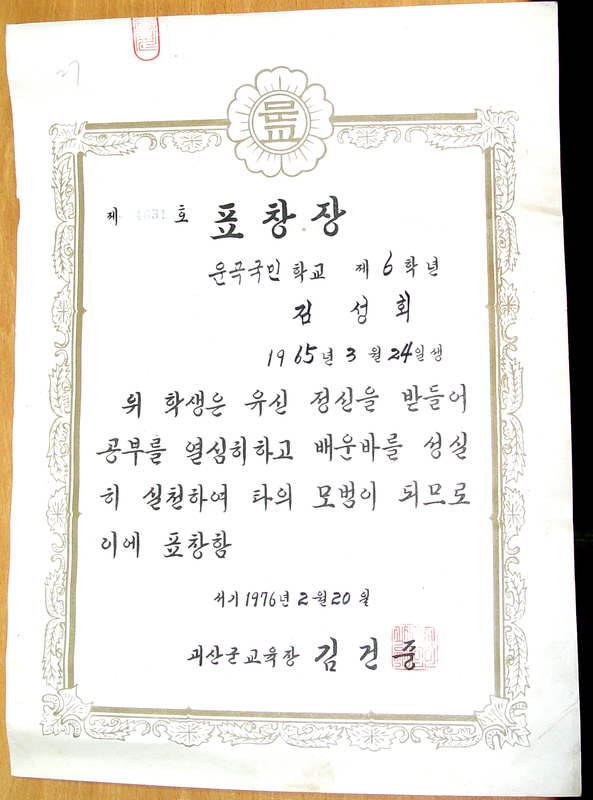 문교
제 4632 호 표창장
운곡국민학교 제 6 학년
김성회
1965년 3월 24일생
위 학생은 유신 정신을 받들어
공부를 열심히하고 배운바를 성실
히 실천하여 타의 모범이 되므로
이에 표창함
서기 1976년 2월 20 월
괴산군교육장 김건중